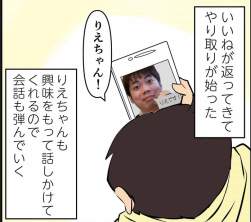 いいねが返ってきて
やり取りが始った
りえちゃん！
りえちゃんも
興味をもって話しかけて
くれるので
会話も弾んでいく